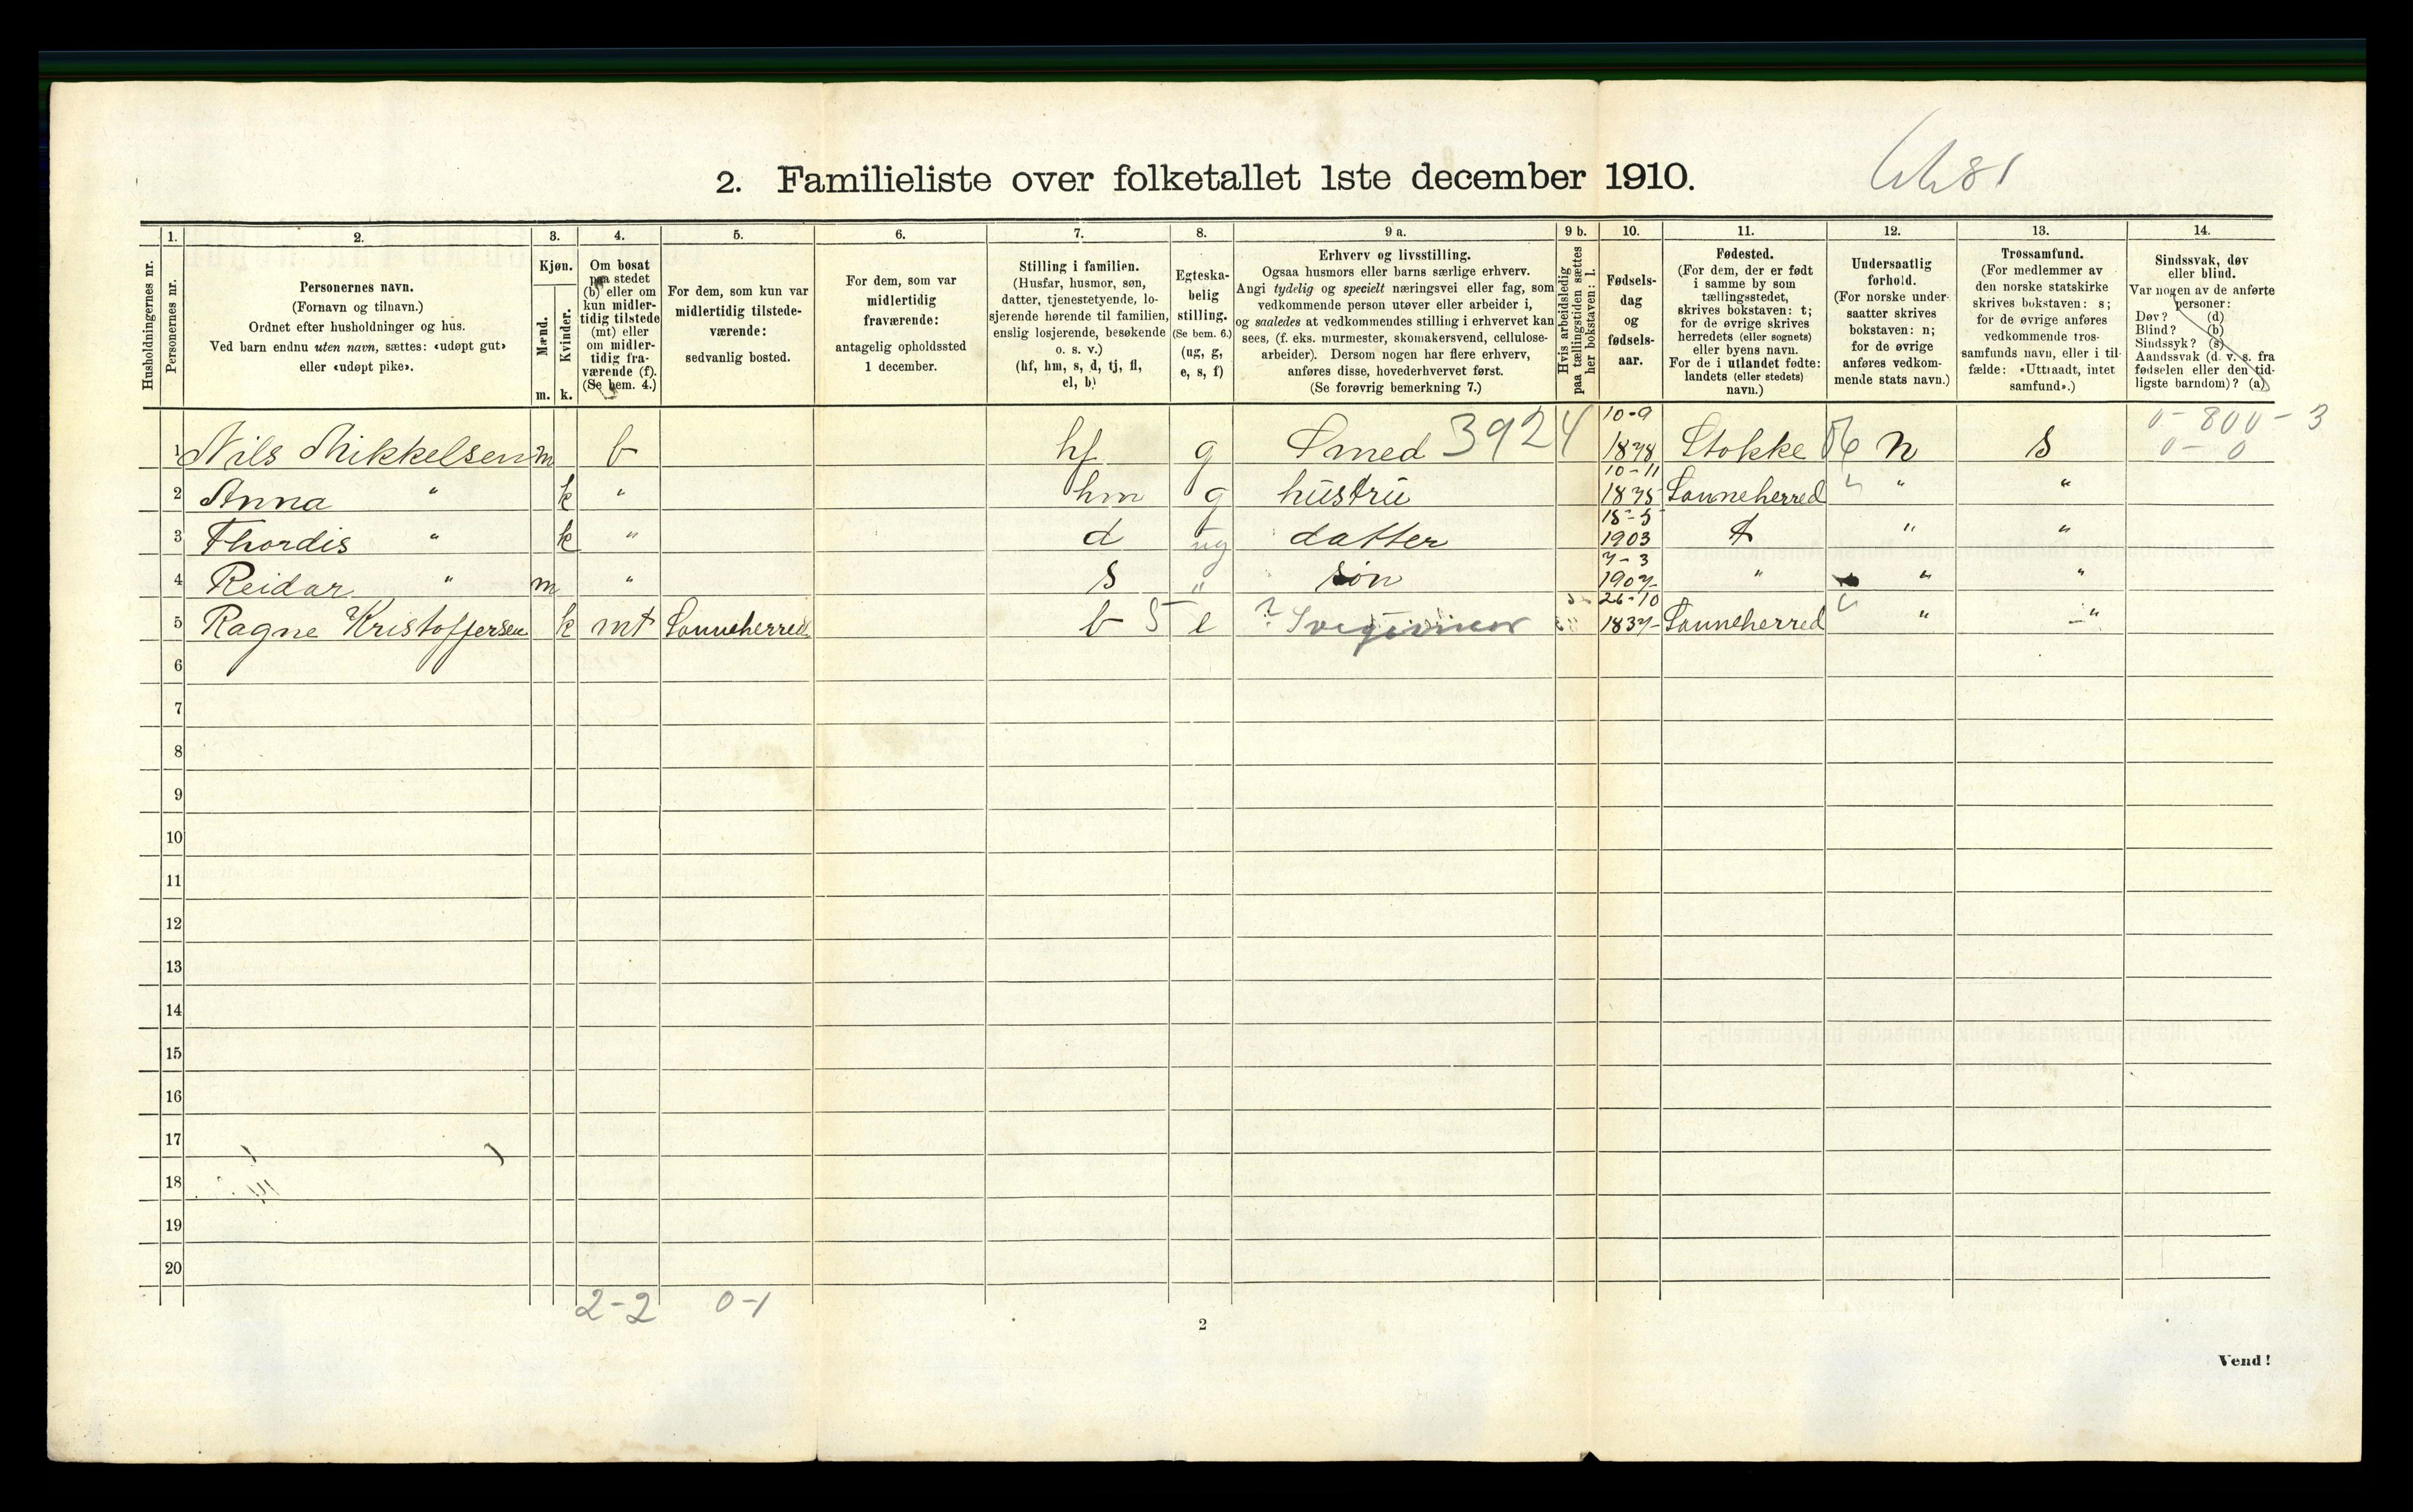 2. Familieliste over folketallet 1ste december 1910.
Husholdningernes nr.
1.
Personernes nr.
2.
Personernes navn.
(Fornavn og tilnavn.)
Ordnet efter husholdninger og hus.
Ved barn endnu uten navn, sættes: «udøpt gut»
eller «udøpt pike».
3.
Kjøn.
Mænd.
Kvinder.
m. k.
4.
Om bosat
paa stedet
(b) eller om
kun midler-
tidig tilstede
(mt) eller
om midler-
tidig fra-
værende (f).
(Se bem. 4.)
5.
For dem, som kun var
midlertidig tilstede-
værende:
sedvanlig bosted.
6.
For dem, som var
midlertidig
fraværende:
antagelig opholdssted
1 december.
7.
Stilling i familien.
(Husfar, husmor, søn,
datter, tjenestetyende, lo-
sjerende hørende til familien,
enslig losjerende, besøkende
o. s. v.)
(hf, hm, s, d, tj, fl,
el, b)
8.
Egteska-
belig
stilling.
(Se bem. 6.)
(ug, g,
e, s, f)
9 a.
Erhverv og livsstilling.
Ogsaa husmors eller barns særlige erhverv.
Angi tydelig og specielt næringsvei eller fag, som
vedkommende person utøver eller arbeider i,
og saaledes at vedkommendes stilling i erhvervet kan
sees, (f. eks. murmester, skomakersvend, cellulose-
arbeider). Dersom nogen har flere erhverv,
anføres disse, hovederhvervet først.
(Se forøvrig bemerkning 7.)
9 b.
Hvis arbeidsledig
paa tællingstiden sættes
her bokstaven: l.
10.
Fødsels-
dag
og
fødsels-
aar.
11.
Fødested.
(For dem, der er født
i samme by som
tællingsstedet,
skrives bokstaven: t;
for de øvrige skrives
herredets (eller sognets)
eller byens navn.
For de i utlandet fødte:
landets (eller stedets)
navn.)
12.
Undersaatlig
forhold.
(For norske under-
saatter skrives
bokstaven: n;
for de øvrige
anføres vedkom-
mende stats navn.)
13.
Trossamfund.
(For medlemmer av
den norske statskirke
skrives bokstaven: s;
for de øvrige anføres
vedkommende tros-
samfunds navn, eller i til-
fælde: «Uttraadt, intet
samfund».)
14.
Sindssvak, døv
eller blind.
Var nogen av de anførte
personer:
Døv? (d)
Blind? (b)
Sindssyk? (s)
Aandssvak (d. v. s. fra
fødselen eller den tid-
ligste barndom)? (a)
1 Nils Mikkelsen m b hf g Smed 3924 10-9 1878 Stokke n s 0-800-3 0-0
2 Anna " k " hm g hustru 10-11 1875 Sanneherred " "
3 Thordis " k " d ug datter 18-5 1903 t " "
4 Reidar " m " s " søn 7-3 1907 " " "
5 Ragne Kristoffersen k mt Sanneherred b 5 e ? 26-10 1837 Sanneherred " "
6
7
8
9
10
11
12
13
14
15
16
17
18
19
20
2-2 0-1
2
Vend!